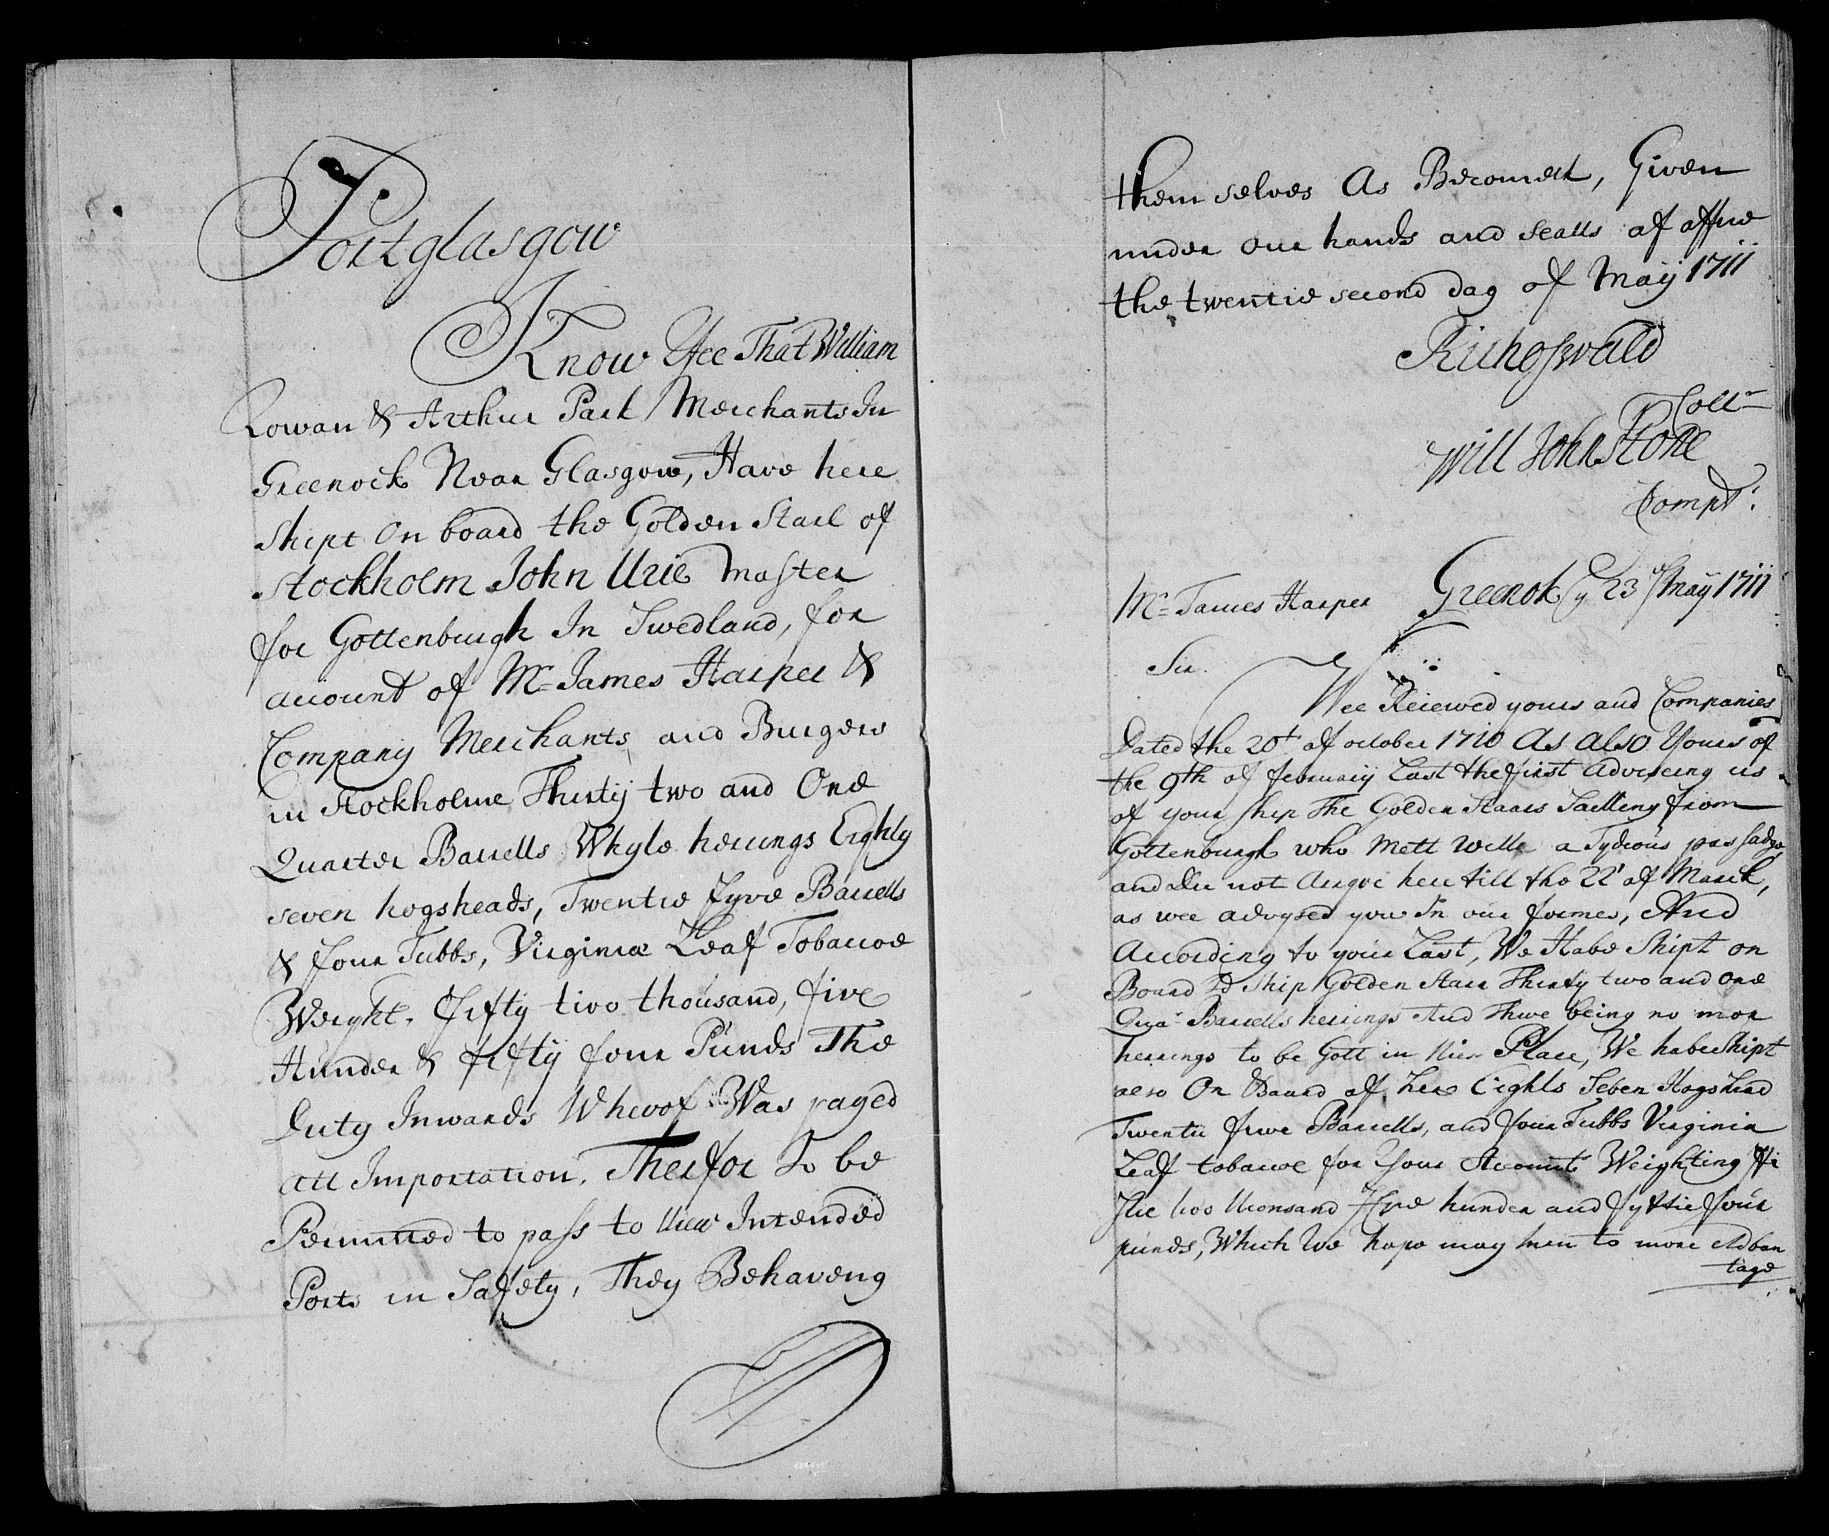 Portglasgow
Know Yee That William
Rowan & Arthur Park Merchants In
Greenock Near Glasgow, Have here
shipt on board the Golden Starl of
Stockholm John Urie Master
for Gottenburgh In Swedland, for
account of Mr James Harper &
Company Merchants and Burgers
in Stockholme Thirty two and One
Quarter Barrells Whyte herrings Eighty
seven hogsheads, Twentie fyve Barrells
& four Tubbs, Virginia Leaf Tobaccoe
Weight. fifty two thousand, five
Hunder & fifty four Punds The
Duty Inwards Wherof Was payed
att Importation. Therfor To be
Permitted to pass to their Intended
Ports in Safety, They Behaveng
themselves As Becometh, Given
under our hands and sealls of office
the twentie second day of May 1711
Rich: Oswald
Collr
Will Johnstone
Compt:
Mr James Harper Greenok y 23d May 1711
Sir.
Wee Reicewed yours and Companies
Dated the 20t of october 1710 As also Yours of
the 9th of february Last the first adviseing us
of your ship The Golden Staars Sailleng from
Gottenburgh who Mett with a Tydious passadge
and did not Arryve here till the 22t of March,
as wee advysed you In our former, And
According to your Last, We Habe Shipt on
Board sd ship Golden Starr Thirty two and one
Quar Barrells herrings And There being no mor
herrings to be Gott in this Place, We habe Shipt
also On Board of her Eighty Seben Hogshead
Twentie fiwe Barrells, and four Tubbs Virginia
Leaf tobaccoe for Your Account Weighting ffi
ftie two thousand fyve hunder and fyftie four
punds, Which We hope may turn to more Adban
tage